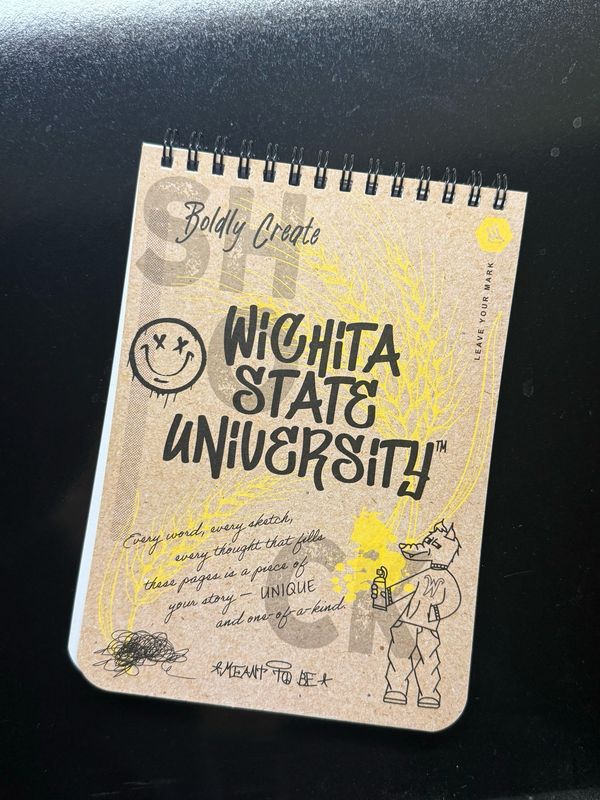 SH
Boldly Create
LEAVE YOUR MARK
O
WiCHiTA
STATE
UNiVERSiTY™
Every word, every sketch,
every thought that fills
these pages is a piece of
your story — UNIQUE
and one-of-a-kind.
CK
W
MEANT TO BE